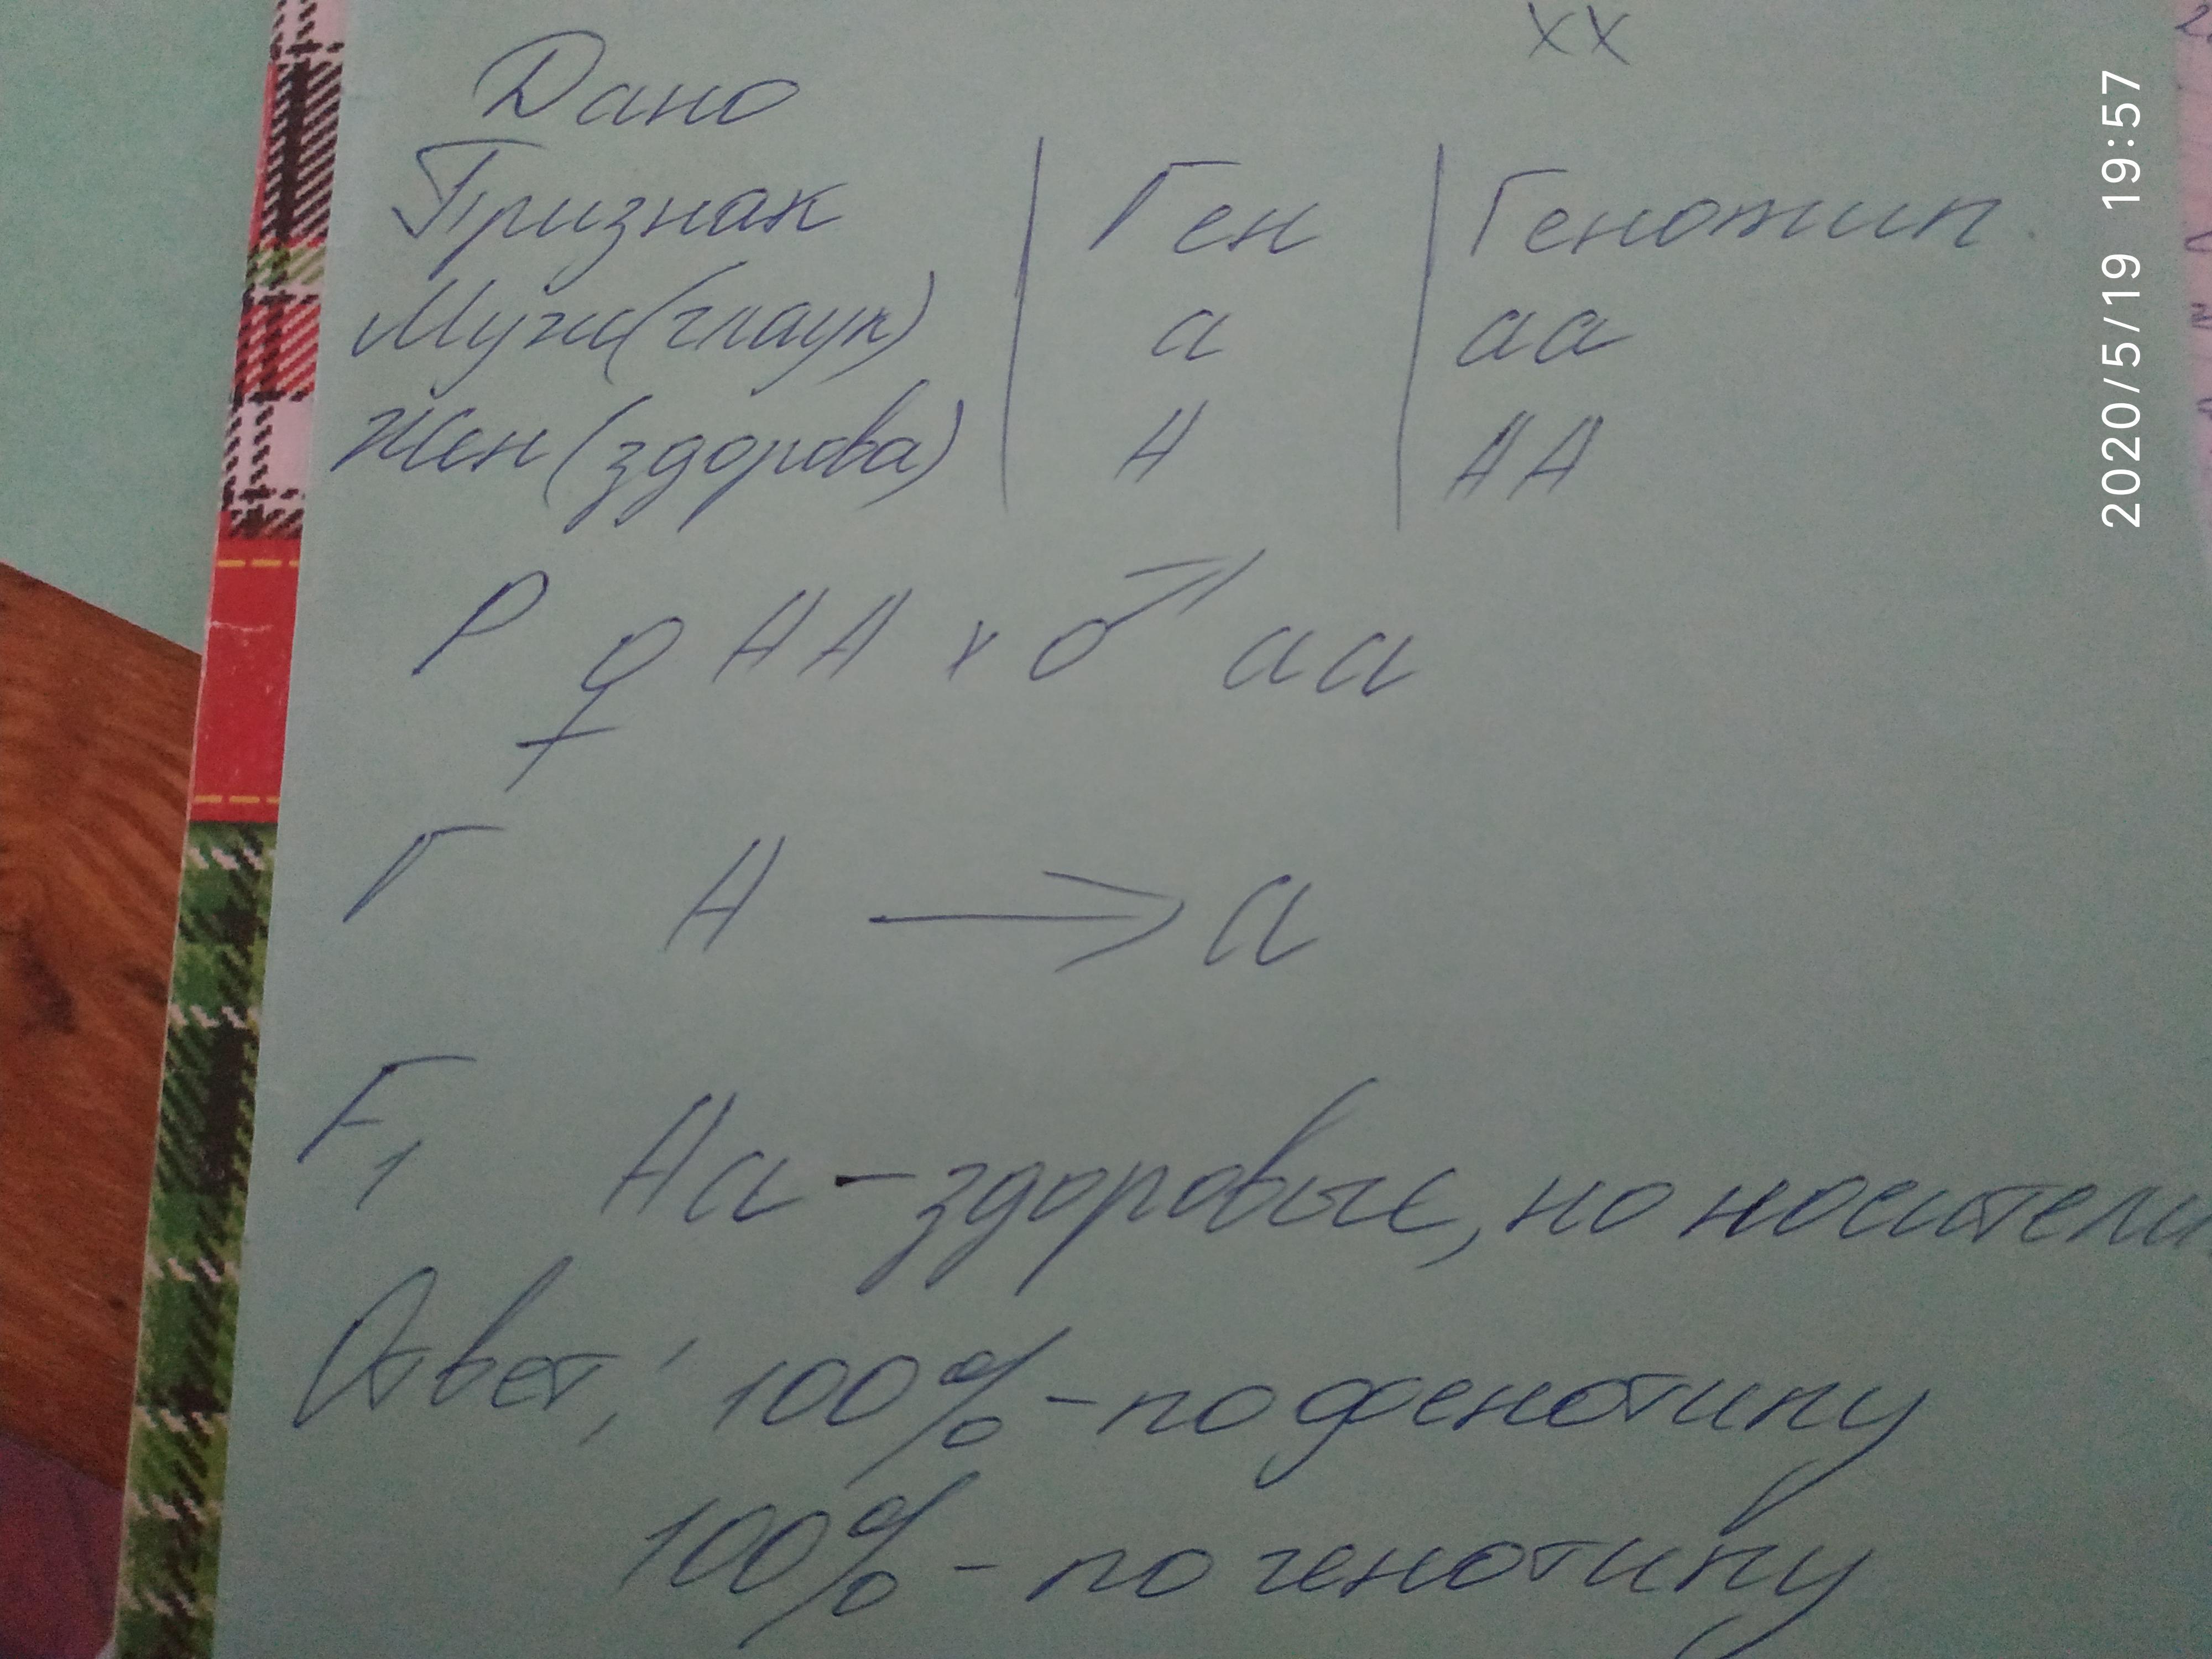 XX
Дано
Признак | Ген | Генотип.
Муж(глаук) | а | аа
Жен(здорова) | А | АА
Р ♀ АА х ♂ аа
Г А → а
F1 Аа - здоровые, но носители
Ответ: 100% - по фенотипу
100% - по генотипу
2020/5/19 19:57